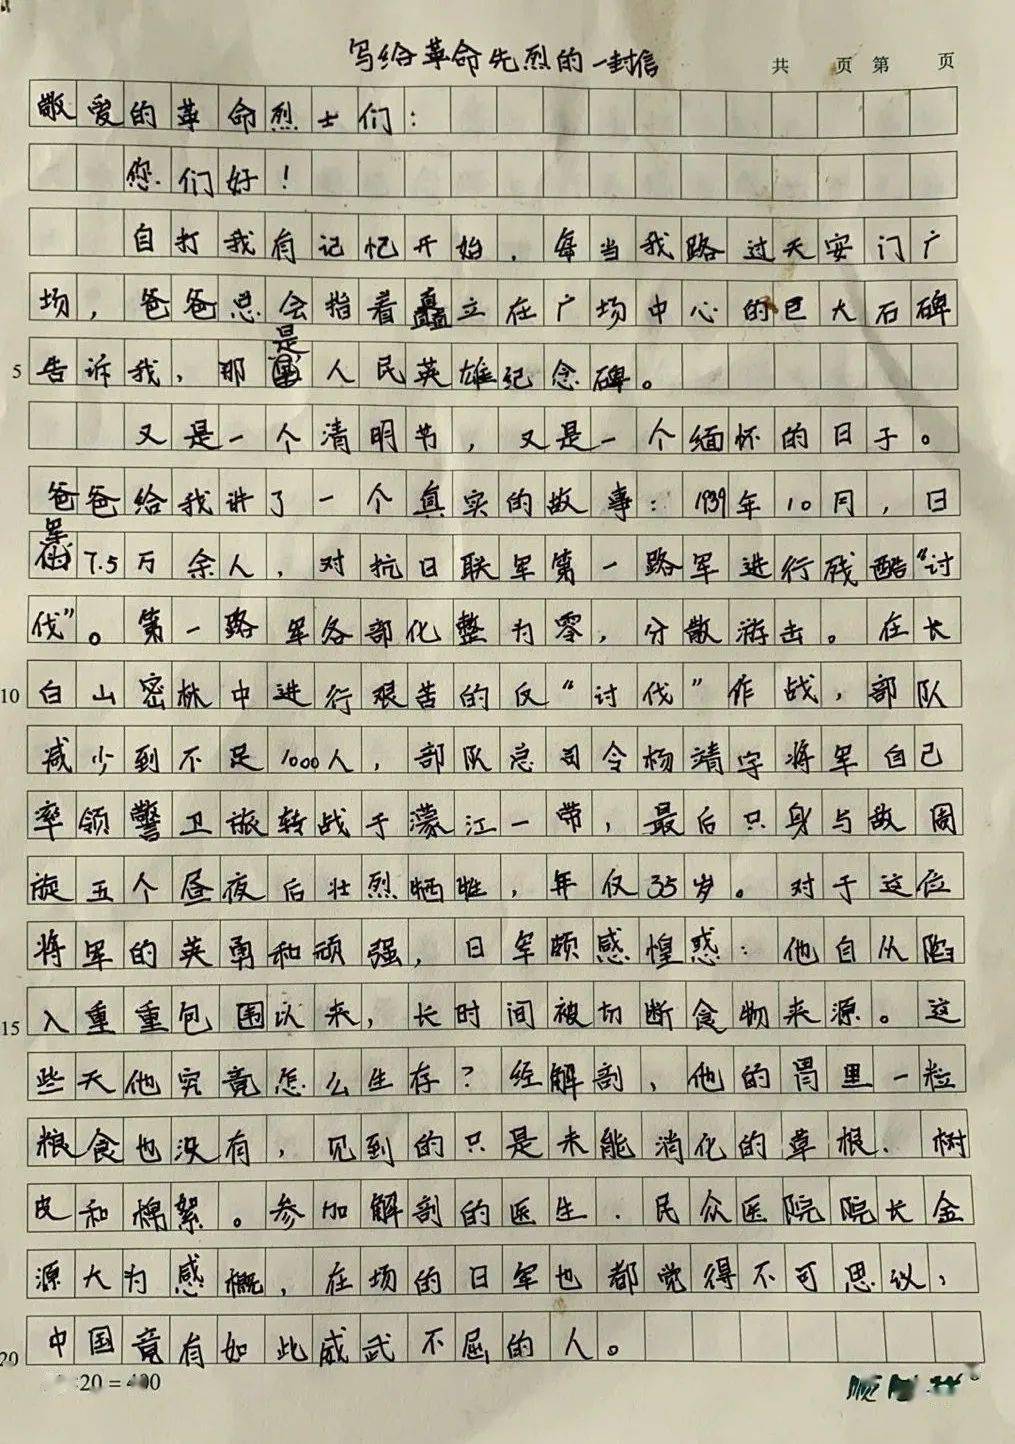 写给革命先烈的一封信
共 页 第 页
敬爱的革命烈士们：
您们好！
自打我有记忆开始，每当我路过天安门广
场，爸爸总会指着矗立在广场中心的巨大石碑
5 告诉我，那是人民英雄纪念碑。
又是一个清明节，又是一个缅怀的日子。
爸爸给我讲了一个真实的故事：1939年10月，日
军7.5万余人，对抗日联军第一路军进行残酷“讨
伐”。第一路军各部化整为零，分散游击。在长
10 白山密林中进行艰苦的反“讨伐”作战，部队
减少到不足1000人，部队总司令杨靖宇将军自己
率领警卫旅转战于濛江一带，最后只身与敌周
旋五个昼夜后壮烈牺牲，年仅35岁。对于这位
将军的英勇和顽强，日军颇感惶惑：他自从陷
15 入重重包围以来，长时间被切断食物来源。这
些天他究竟怎么生存？经解剖，他的胃里一粒
粮食也没有，见到的只是未能消化的草根、树
皮和棉絮。参加解剖的医生、民众医院院长金
源大为感概，在场的日军也都觉得不可思议，
20 中国竟有如此威武不屈的人。
20=400